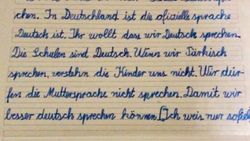 chen. In Deutschland ist die oficielle sprache
Deutsch ist. Ihr wollt dass wir Deutsch sprechen.
Die Schulen sind Deutsch. Wenn wir Türkisch
sprechen, verstehn die Kinder uns nicht. Wir dür-
fen die Muttersprache nicht sprechen. Damit wir
besser deutsch sprechen können. Ich weis nur